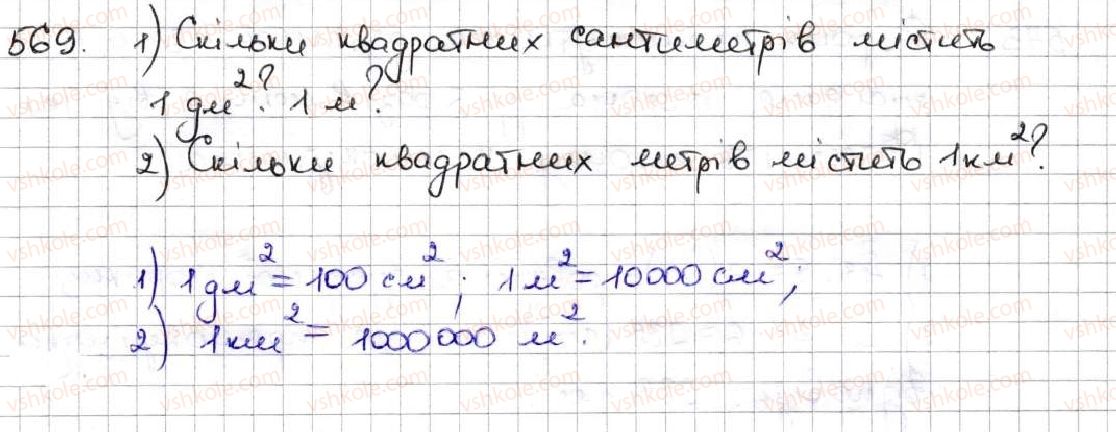 569. 1) Скільки квадратних сантиметрів містить
1 дм²? 1 м?
2) Скільки квадратних метрів містить 1 км²?
1) 1 дм² = 100 см²; 1 м² = 10000 см²;
2) 1 км² = 1000000 м².